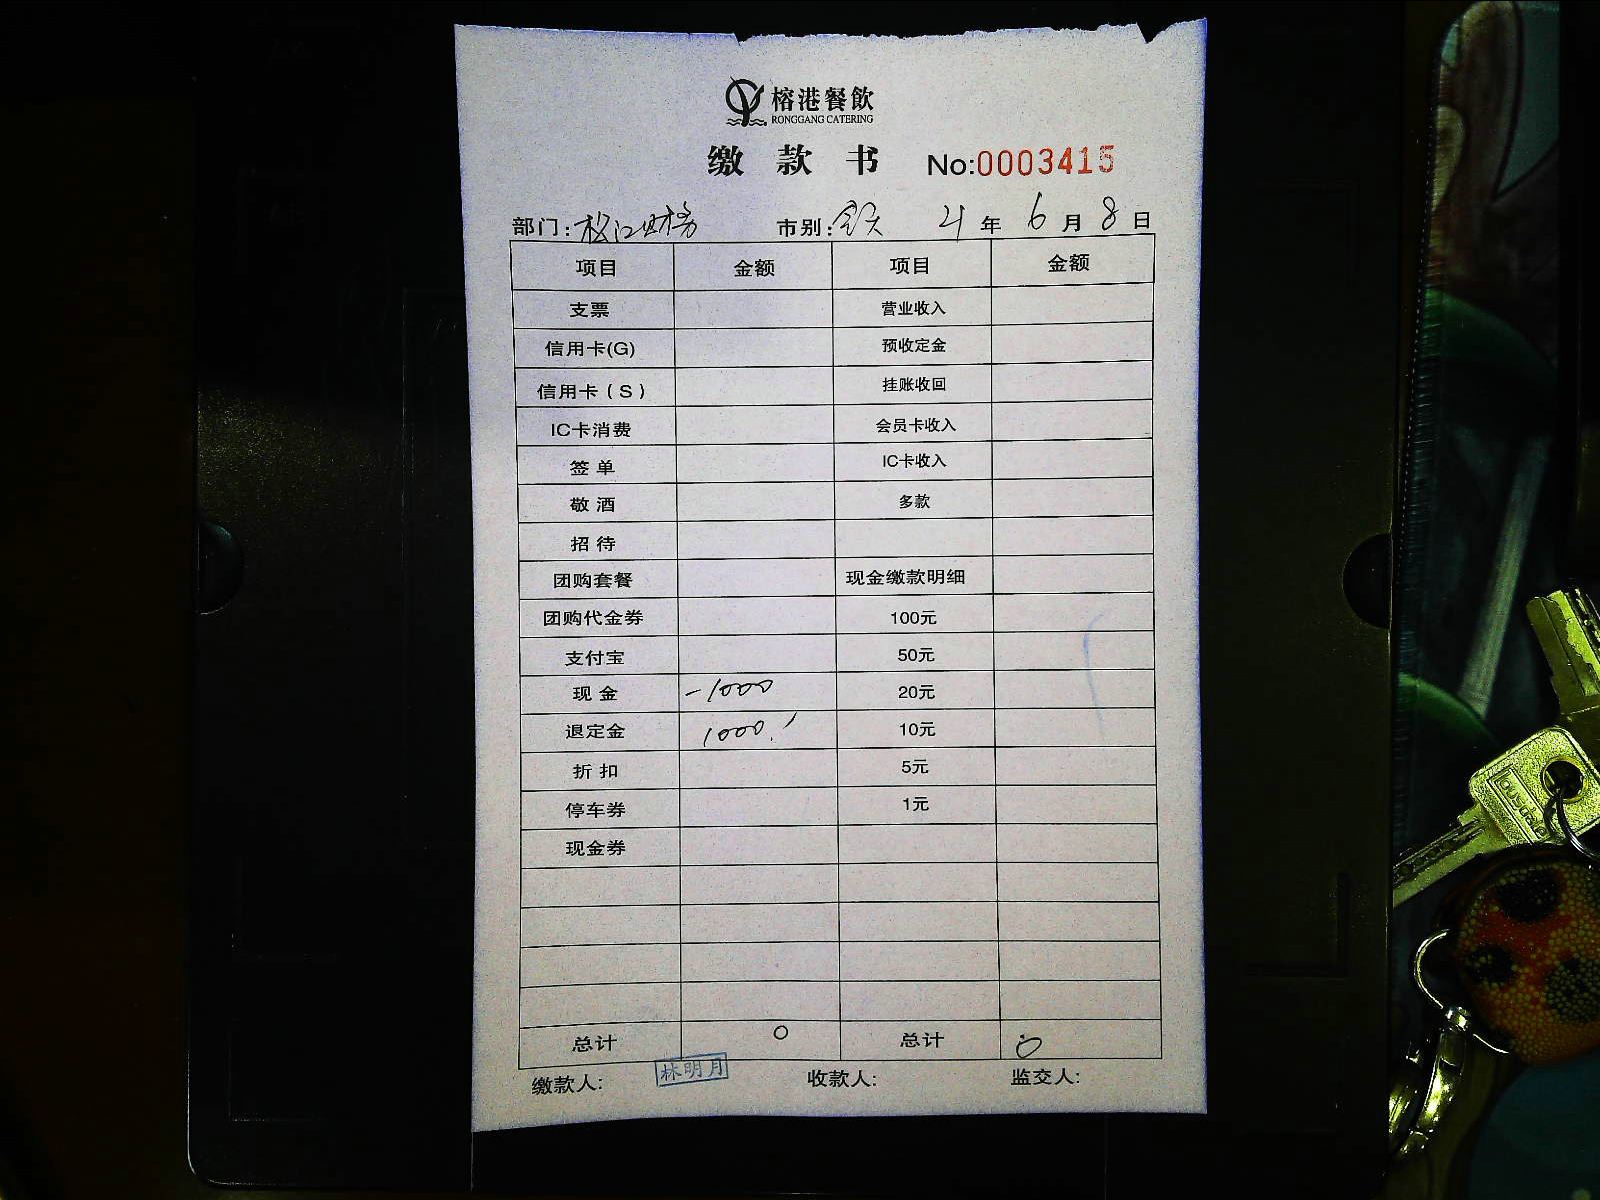 榕港餐飲
RONGGANG CATERING
缴款书 No:0003415
部门:松江财务 市别:全天 21年6月8日
项目 金额 项目 金额
支票 营业收入
信用卡(G) 预收定金
信用卡(S) 挂账收回
IC卡消费 会员卡收入
签单 IC卡收入
敬酒 多款
招待
团购套餐 现金缴款明细
团购代金券 100元
支付宝 50元
现金 -1000 20元
退定金 1000. 10元
折扣 5元
停车券 1元
现金券
总计 0 总计 0
缴款人: 林明月 收款人: 监交人: